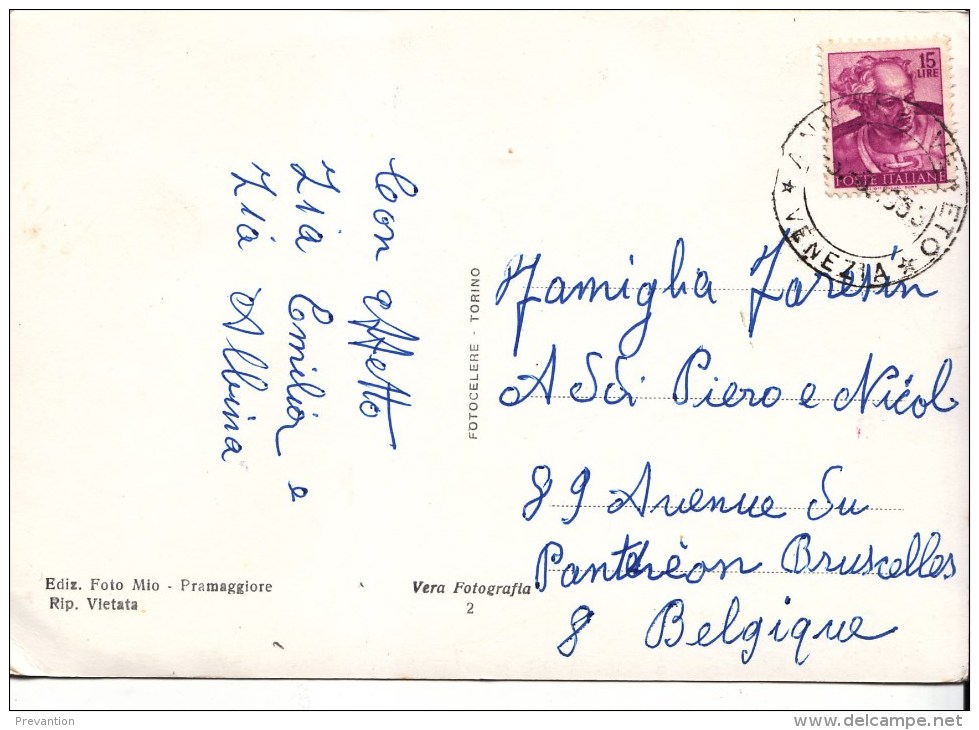 15
LIRE
POSTE ITALIANE
ANN VENETO
★ VENEZIA ★
Con affetto
Zia Emilia e
Zia Albina
FOTOCELERE - TORINO
Famiglia Zoretin
A Sdi Piero e Nicol
89 Avenue Du
Panthèon Bruscelles
8 Belgique
Ediz. Foto Mio - Pramaggiore
Rip. Vietata
Vera Fotografia
2
Prevantion
www.delcampe.net